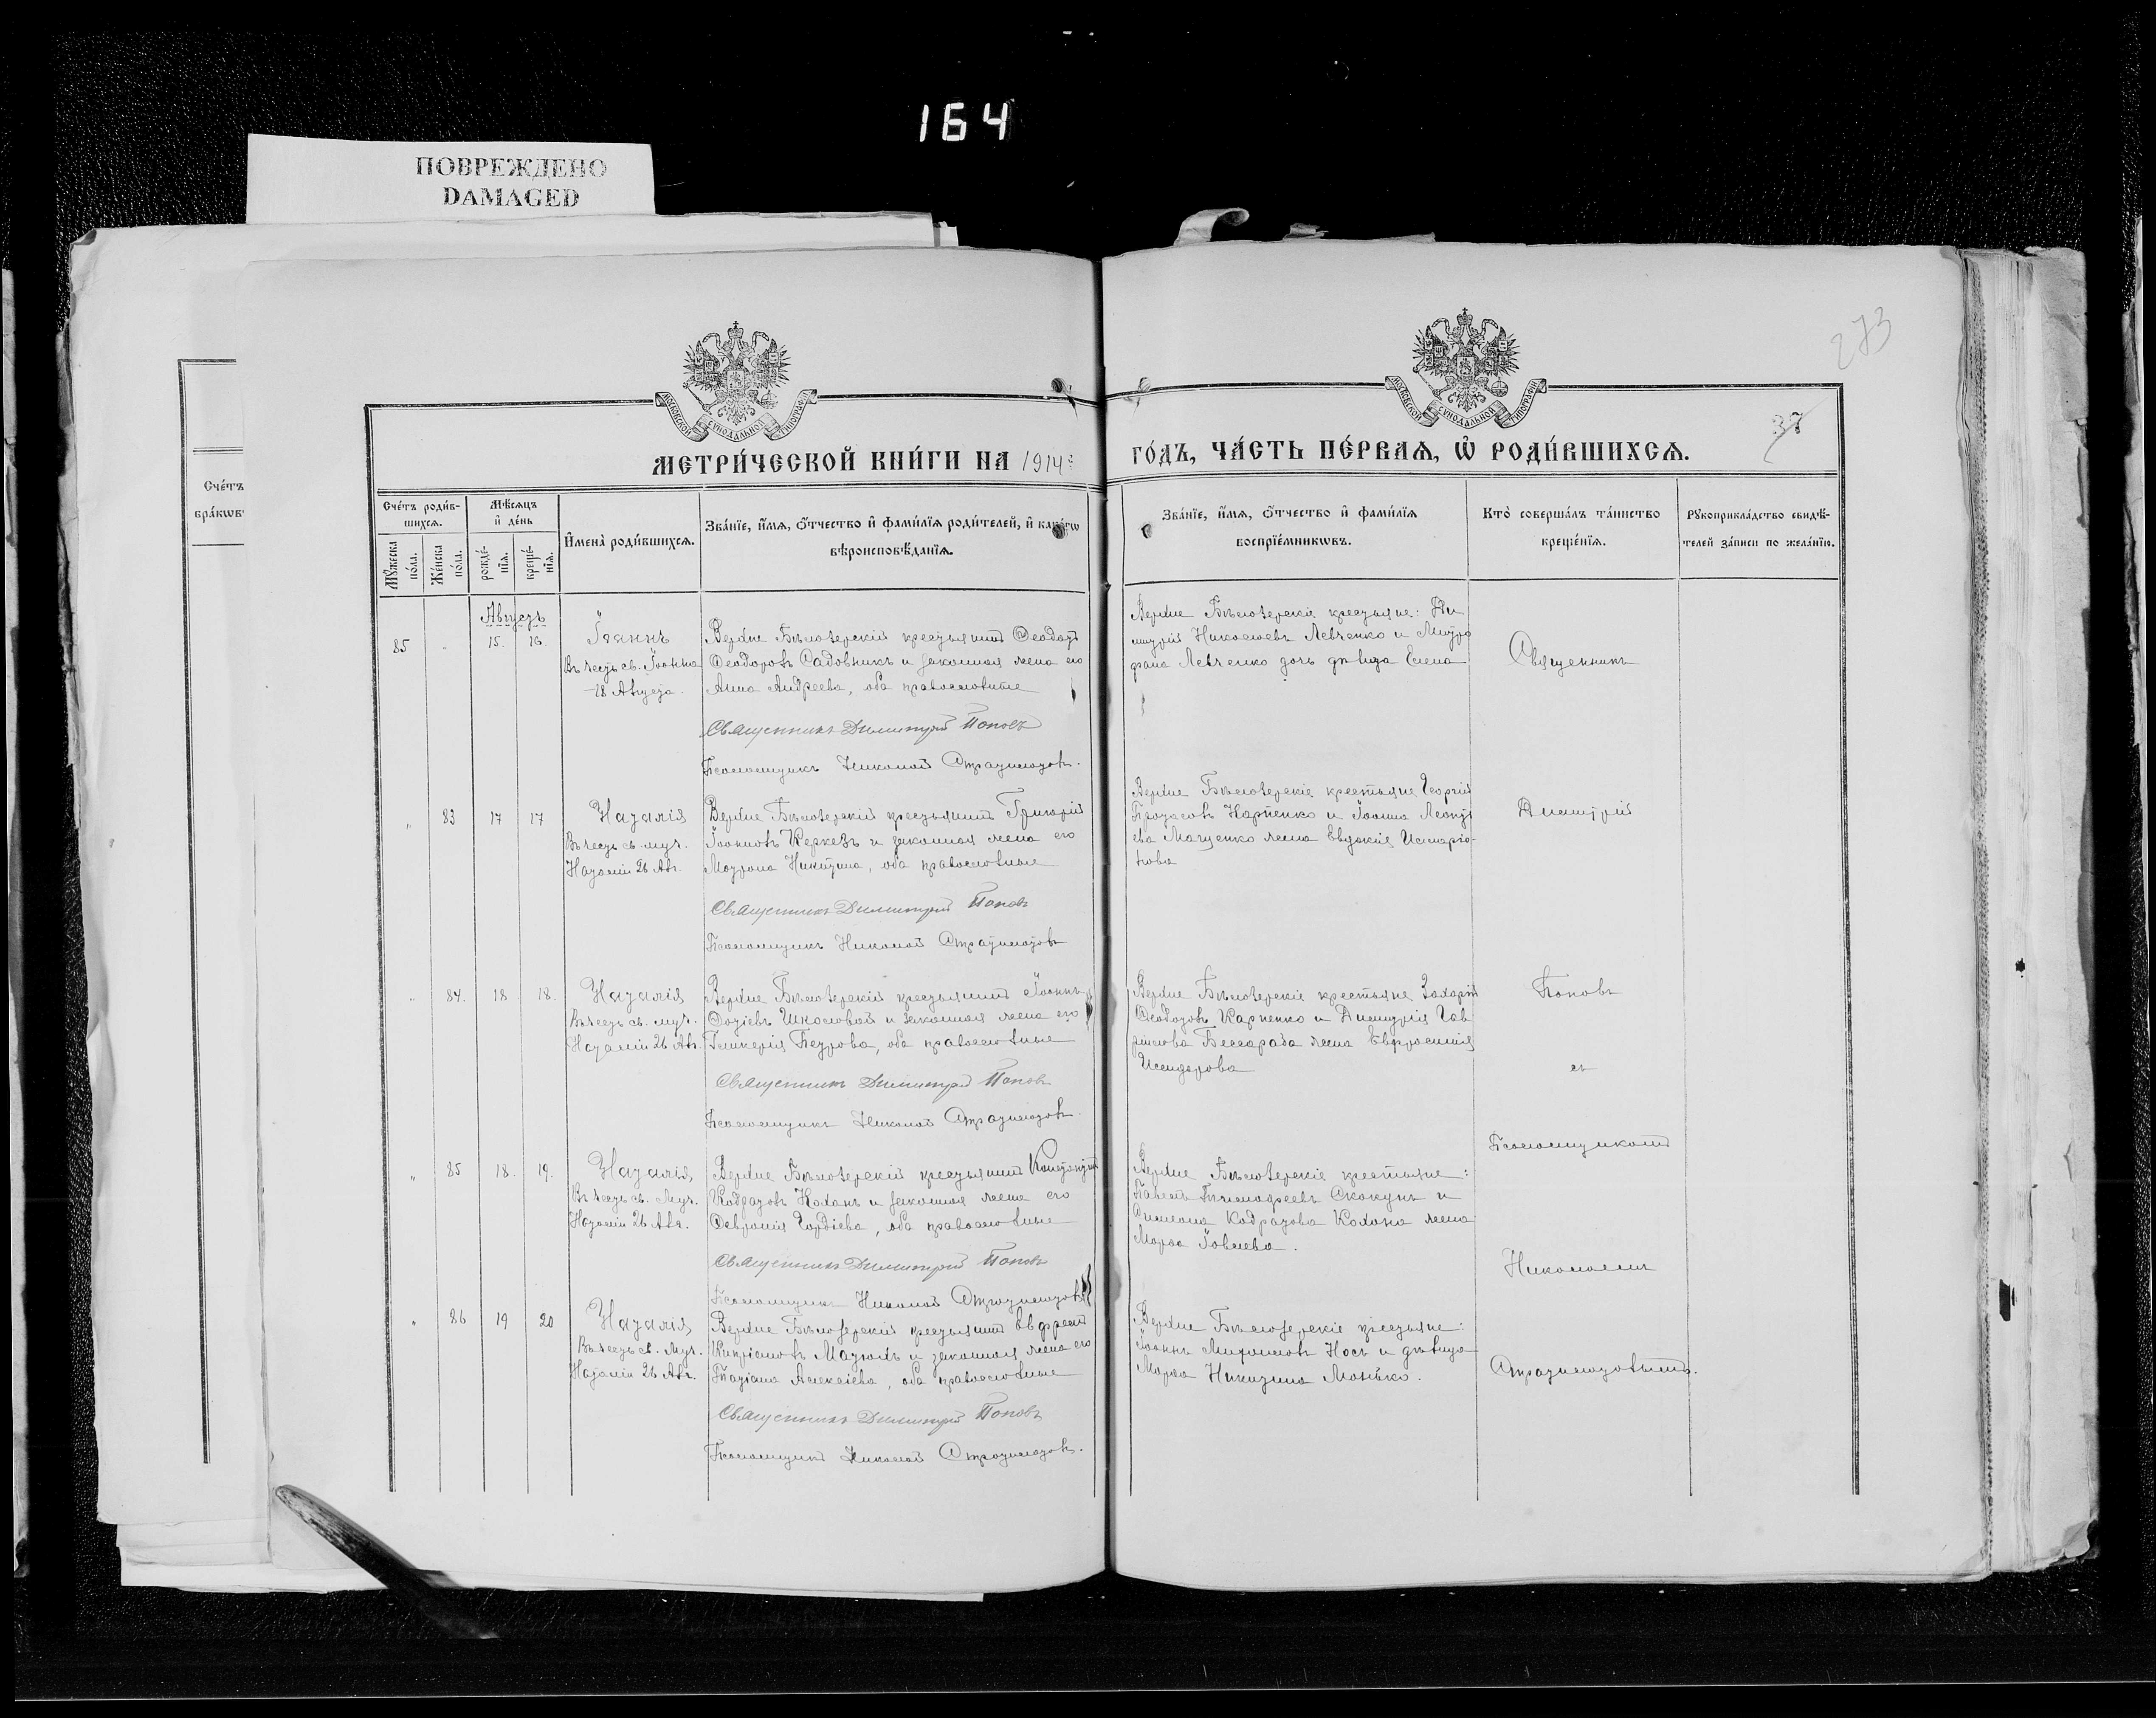 164
ПОВРЕЖДЕНО
DAMAGED
273
37
МОСКОВСКОЙ СѴНОДАЛЬНОЙ ТИПОГРАФІИ
МОСКОВСКОЙ СѴНОДАЛЬНОЙ ТИПОГРАФІИ
МЕТРИ́ЧЕСКОЙ КНИ́ГИ НА 1914
ГО́ДЪ, ЧА́СТЬ ПЕ́РВАѦ, Ѡ҆ РОДИ́ВШИХСѦ.
Сче́тъ
бра́кωвъ
Сче́тъ роди́в-
шихсѧ.
Мѣ́сѧцъ
и҆ де́нь
Мꙋ́жеска
по́ла.
Же́нска
по́ла.
рожде́-
нїѧ.
креще́-
нїѧ.
И҆мена̀ роди́вшихсѧ.
Зва́нїе, и҆́мѧ, ѻ҆́тчество и҆ фами́лїѧ роди́телей, и҆ како́гω
вѣроисповѣ́данїѧ.
Зва́нїе, и҆́мѧ, ѻ҆́тчество и҆ фами́лїѧ
воспрїе́мникωвъ.
Кто̀ соверша́лъ та́инство
креще́нїѧ.
Рꙋкоприкла́дство свидѣ́-
телей за́писи по жела́нїю.
Августъ
85 15. 16. Іоаннъ
Въ честь св. Іоанна
28 Августа.
Верхне Бѣлозерскій крестьянинъ Феодотъ
Феодоровъ Садовникъ и законная жена его
Анна Андреева, оба православные
Священникъ Димитрій Поповъ
Псаломщикъ Николай
Верхне Бѣлозерскіе крестьяне: Ди
митрій Николаевъ Левченко и Митро
фана Левченко дочь дѣвица Елена
Священникъ
83 17 17 Наталія
Въ честь св. муч.
Наталіи 26 Авг.
Верхне Бѣлозерскій крестьянинъ Григорій
Іоанновъ Керкезъ и законная жена его
Матрона Никитина, оба православные
Священникъ Димитрій Поповъ
Псаломщикъ Николай
Верхне Бѣлозерскіе крестьяне Георгій
Протасовъ Карпенко и Іоанна Леонті
ева Мащенко жена Евдокія Иларіо-
нова
Димитрій
84. 18. 18. Наталія
Въ честь св. муч.
Наталіи 26 Авг.
Верхне Бѣлозерскій крестьянинъ Іоаннъ
Фотіевъ Школовой и законная жена его
Гликерія Петрова, оба православные
Священникъ Димитрій Поповъ
Псаломщикъ Николай
Верхне Бѣлозерскіе крестьяне Захарій
Феодотовъ Карпенко и Димитрія Гав
рилова Бессараба жена Евфросинія
Исидорова
Поповъ
съ
85 18. 19. Наталія
Въ честь св. Муч.
Наталіи 26 Авг.
Верхне Бѣлозерскій крестьянинъ
Кодратовъ Коханъ и законная жена его
Февронія Гордіева, оба православные
Священникъ Димитрій Поповъ
Псаломщикъ Николай
Верхне Бѣлозерскіе крестьяне:
Павелъ Тимофеевъ Скокунъ и
Филиппа Кодратова Кохана жена
Марѳа Іовлева.
Псаломщикомъ
Николаемъ
86 19 20 Наталія
Въ честь св. Муч.
Наталіи 26 Авг.
Верхне Бѣлозерскій крестьянинъ Евфремъ
Кипріановъ и законная жена его
Татіана Алексіева, оба православные
Священникъ Димитрій Поповъ
Псаломщикъ Николай
Верхне Бѣлозерскіе крестьяне:
Іоаннъ Мироновъ Носъ и дѣвица
Марѳа Никитина Манько.